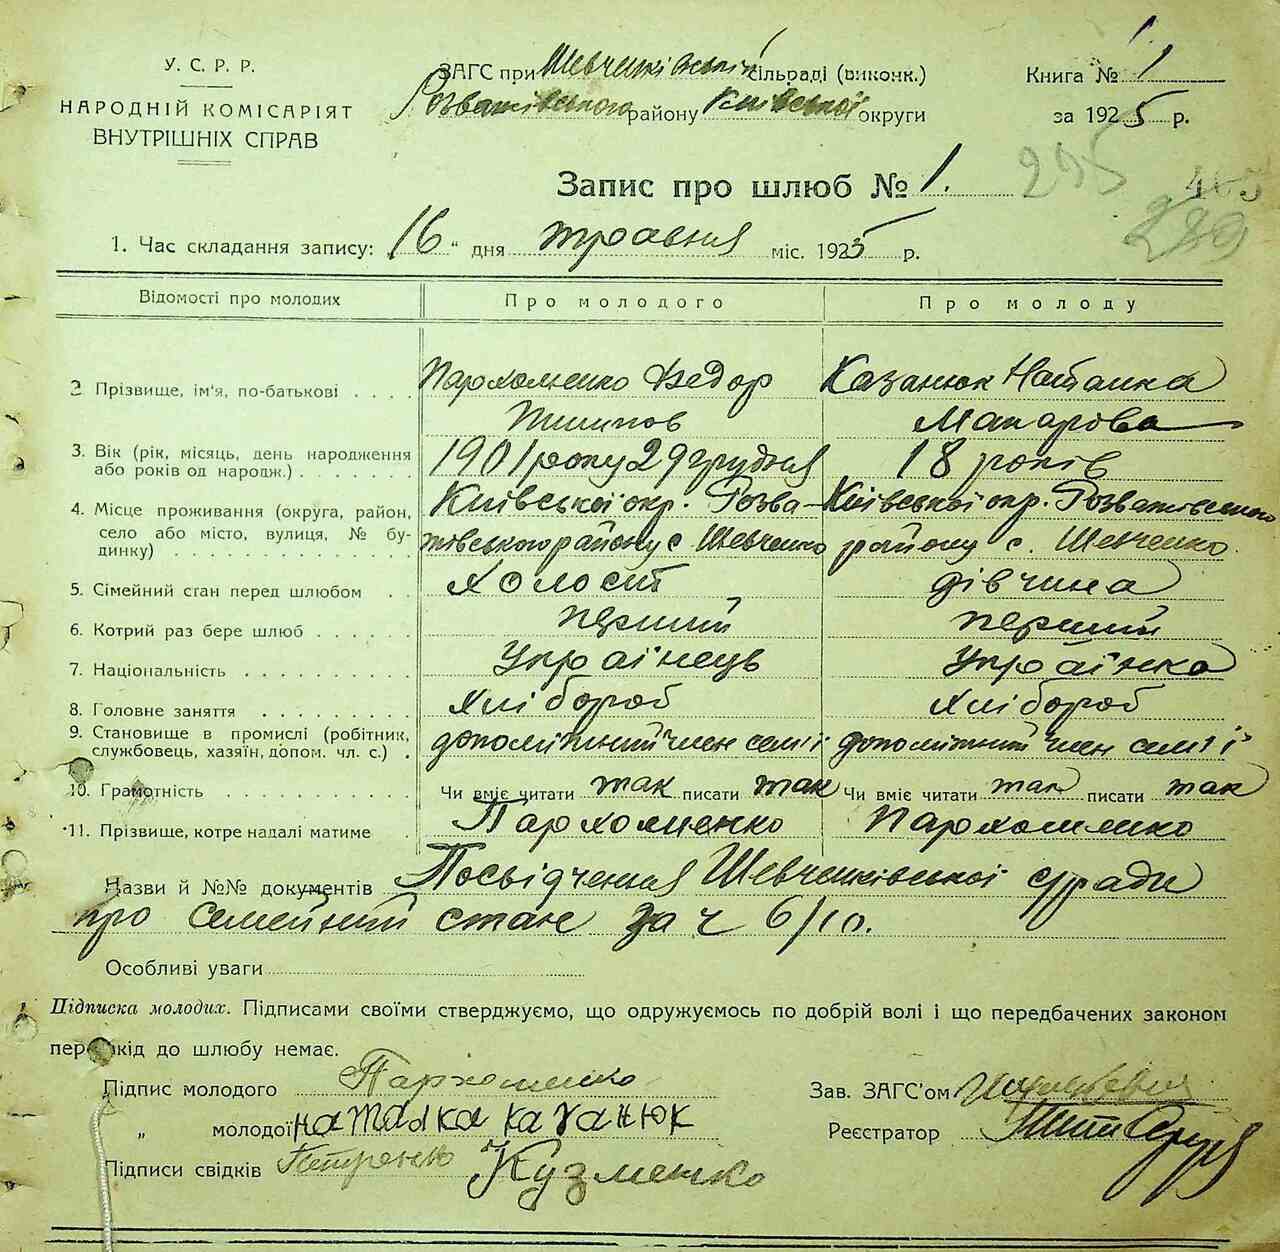 У. С. Р. Р.
НАРОДНІЙ КОМІСАРІЯТ
ВНУТРІШНІХ СПРАВ
ЗАГС при Шевченківській сільраді (виконк.)
Розважівського району Київської округи
Книга № 1
за 1925 р.
Запис про шлюб № 1.
295
405
289
1. Час складання запису: 16 " дня травня міс. 1925 р.
Відомості про молодих Про молодого Про молоду
2 Прізвище, ім'я, по-батькові Пархоменко Федор Казанюк Наталка
Макарова
3. Вік (рік, місяць, день народження 1901 року 29 грудня 18 років
або років од народж.)
4. Місце проживання (округа, район, Київської окр. Розва- Київської окр. Розважівського
село або місто, вулиця, № бу- жівського району с Шевченко району с. Шевченко
динку)
5. Сімейний стан перед шлюбом холост дівчина
6. Котрий раз бере шлюб перший перший
7. Національність Українець Українка
8. Головне заняття хлібороб хлібороб
9. Становище в промислі (робітник, допоміжний член семії допоміжний член семії
службовець, хазяїн, допом. чл. с.)
10. Грамотність Чи вміє читати так писати так Чи вміє читати так писати так
11. Прізвище, котре надалі матиме Пархоменко Пархоменко
Назви й №№ документів Посвідчення Шевченківської с/ради
про семейний стан за ч 6/10.
Особливі уваги
Підписка молодих. Підписами своїми стверджуємо, що одружуємось по добрій волі і що передбачених законом
перешкід до шлюбу немає.
Підпис молодого Пархоменко Зав. ЗАГС'ом
" молодої наталка казанюк Реєстратор
Підписи свідків Кузменко